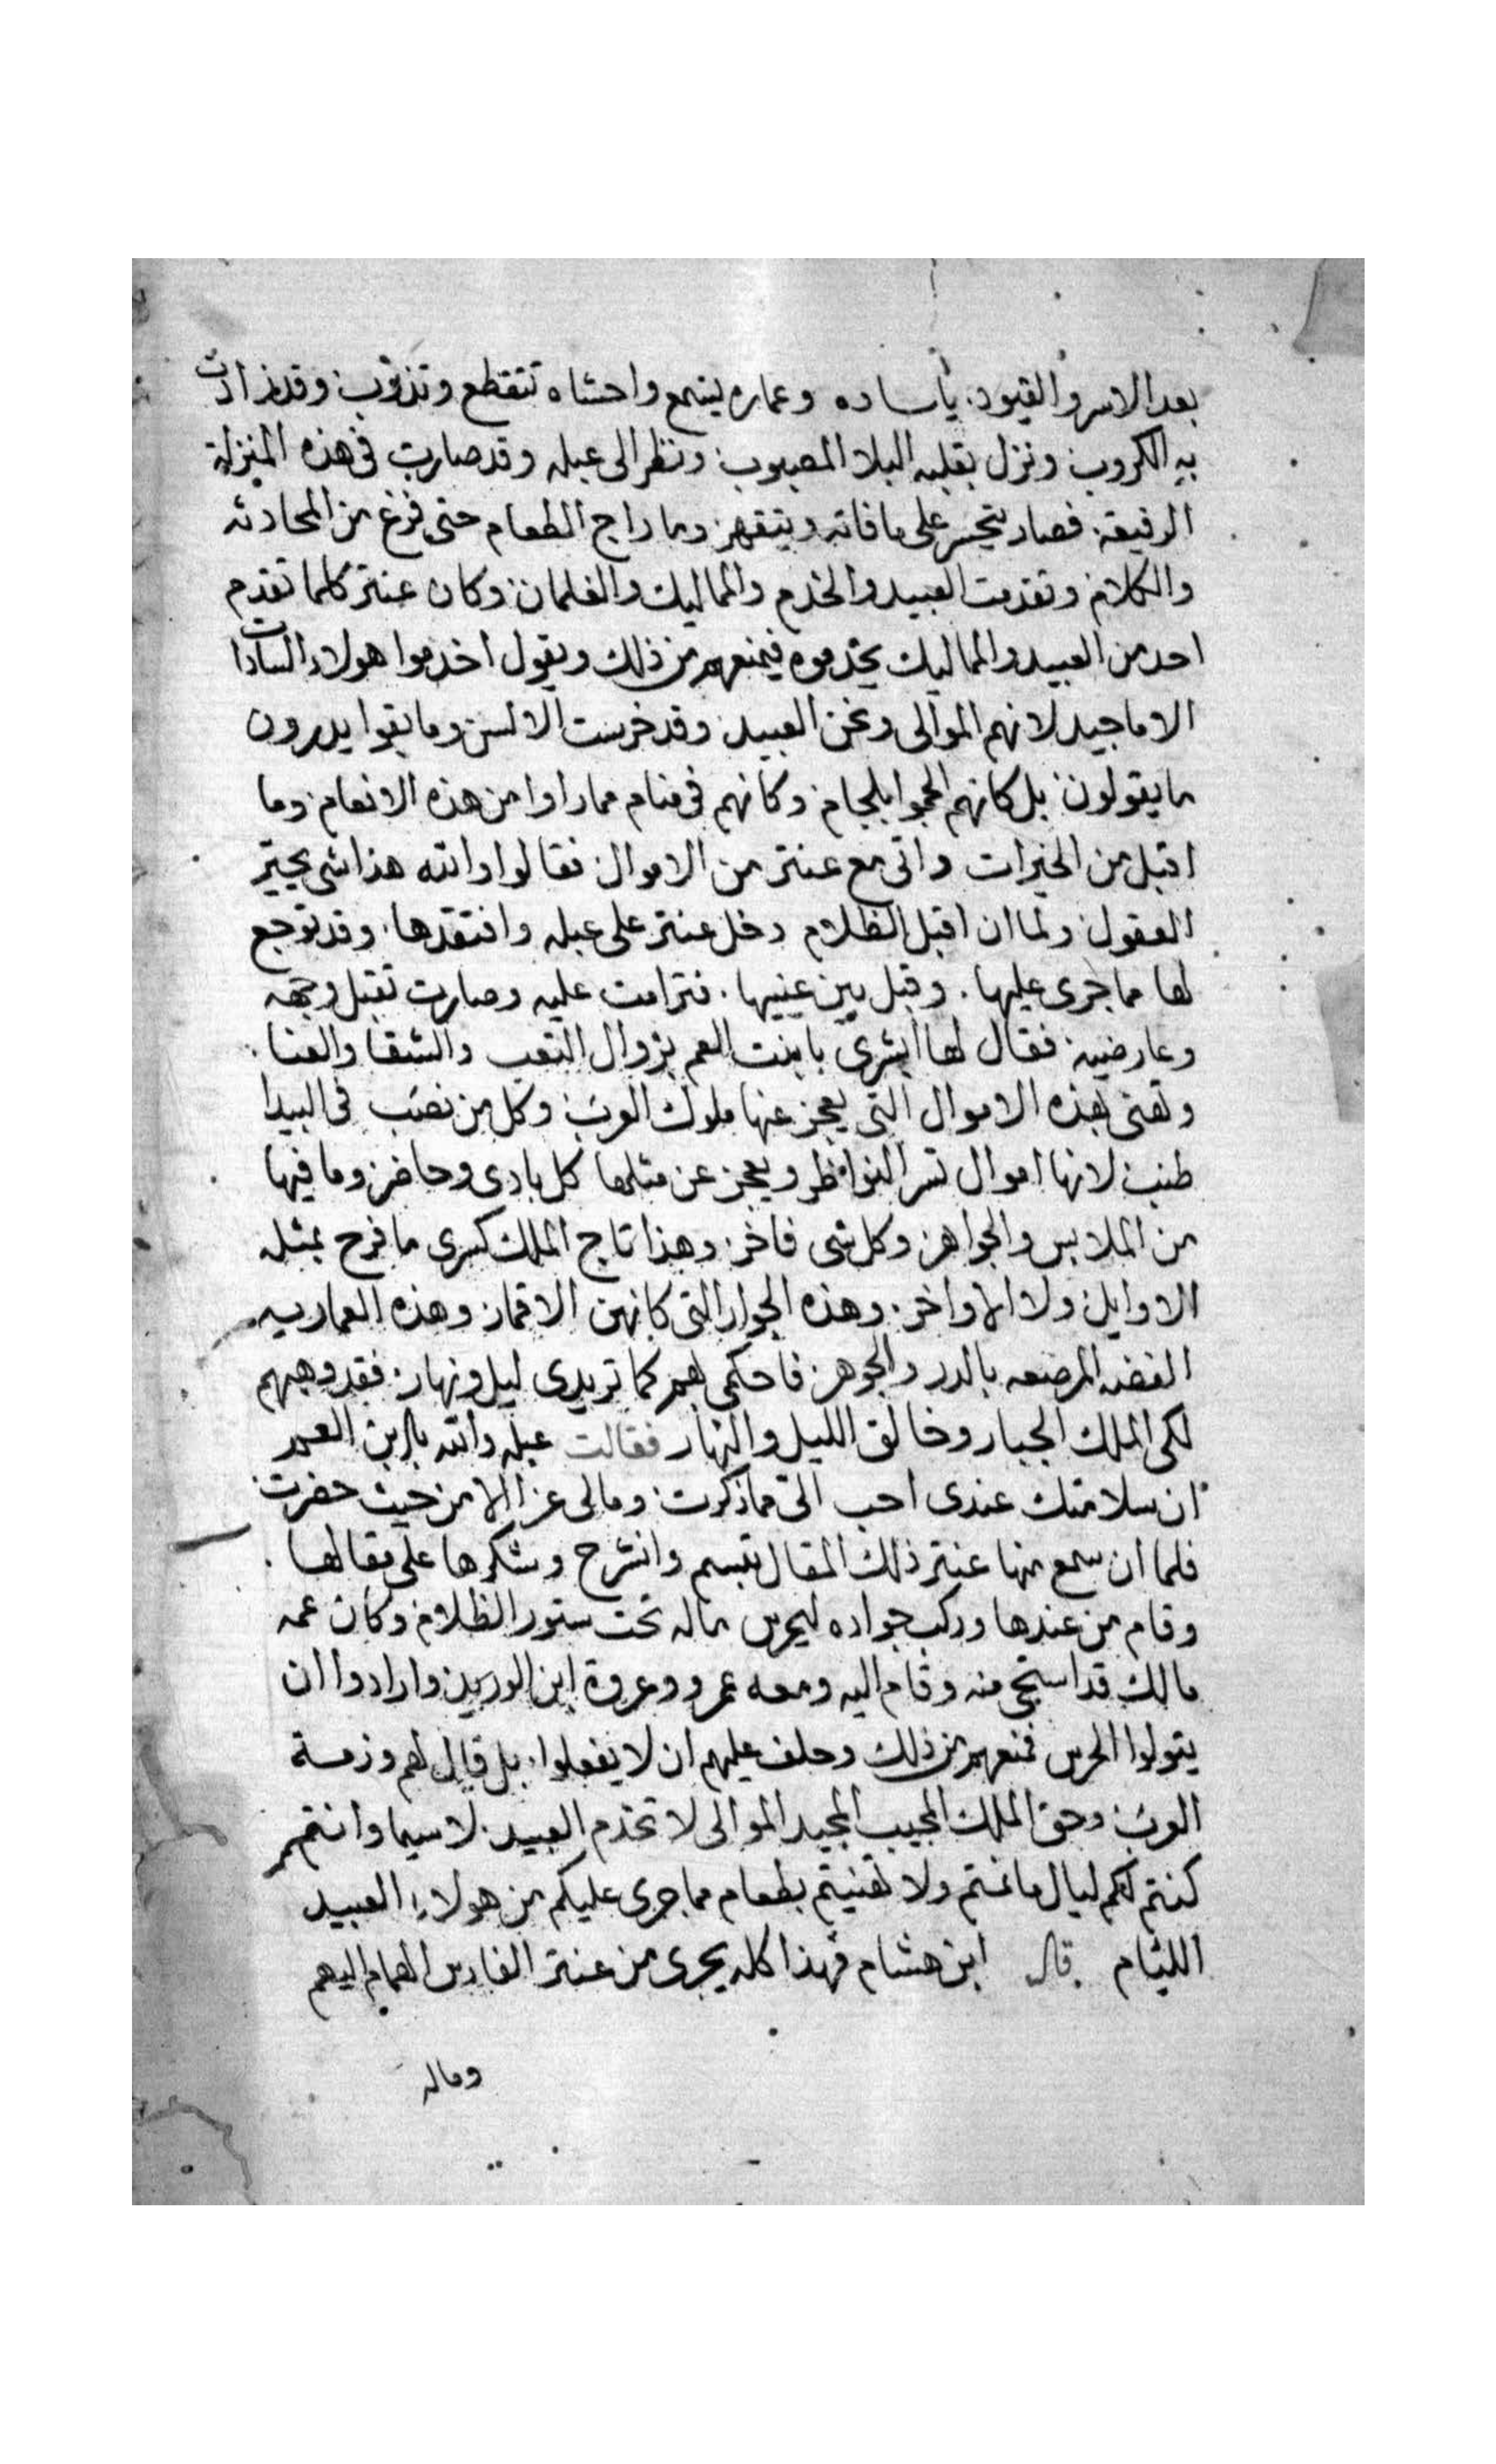 بعد الاسر والقيود. يا ساده وعماره يسمع واحشاه تتقطع وتذوب. وقد زادت
به الكروب. ونزل بقلبه البلا المصبوب. ونظر الى عبله وقد صارت فى هذه المنزلة
الرفيعة. فصار يتحسر على ما فاته ويتقهر. وما راج الطعام حتى فرغ من المحادثه
والكلام. وتقدمت العبيد والخدم والمماليك والغلمان. وكان عنتر كلما تقدم
احد من العبيد والمماليك يخدموه فيمنعهم من ذلك ويقول اخدموا هولاء السادات
الاماجيد لانهم الموالى ونحن العبيد. وقد خرست الالسن وما بقوا يدرون
ما يقولون. بل كانهم الجموا بلجام. وكانهم فى منام مما راوا من هذه الانعام. وما
اقبل من الخيرات واتى مع عنتر من الاموال. فقالوا والله هذا شى يحير
العقول. ولما ان اقبل الظلام دخل عنتر على عبله وافتقدها. وقد توجع
لها مما جرى عليها. وقبل بين عينيها. فترامت عليه وصارت تقبل وجهه
وعارضيه. فقال لها ابشرى يا بنت العم بزوال التعب والشقا والعنا.
وتهنى بهذه الاموال التى يعجز عنها ملوك العرب. وكل من نصب فى البيدا
طنب. لانها اموال تسر النواظر ويعجز عن مثلها كل بادى وحاضر. وما فيها
من الملابس والجواهر. وكل شى فاخر. وهذا تاج الملك كسرى ما فرح بمثله
الاوايل ولا الاواخر. وهذه الجوار التى كانهن الاقمار. وهذه العماريه
الفضه المرصعه بالدر والجوهر. فاحكمى بهم كما تريدى ليل ونهار. فقد وهبهم
لكى الملك الجبار وخالق الليل والنهار فقالت عبله والله يا بن العم
ان سلامتك عندى احب الى مما ذكرت. ومالى عز الا من حيث حضرت.
فلما ان سمع منها عنتر ذلك المقال تبسم وانشرح وشكرها على مقالها.
وقام من عندها وركب جواده ليحرس ماله تحت ستور الظلام. وكان عمه
مالك قد استحى منه وقام اليه ومعه عمرو وعروة ابن الورد. وارادوا ان
يتولوا الحرس فمنعهم من ذلك وحلف عليهم ان لا يفعلوا. بل قال لهم وذمة
العرب. وحق الملك المجيب المجيد الموالى لا تخدم العبيد. لا سيما وانتم
كنتم لكم ليال ما نمتم ولا تهنيتم بطعام مما جرى عليكم من هولاء العبيد
الليام قال ابن هشام فهذا كله يجرى من عنتر الفارس الهمام اليهم
وماله